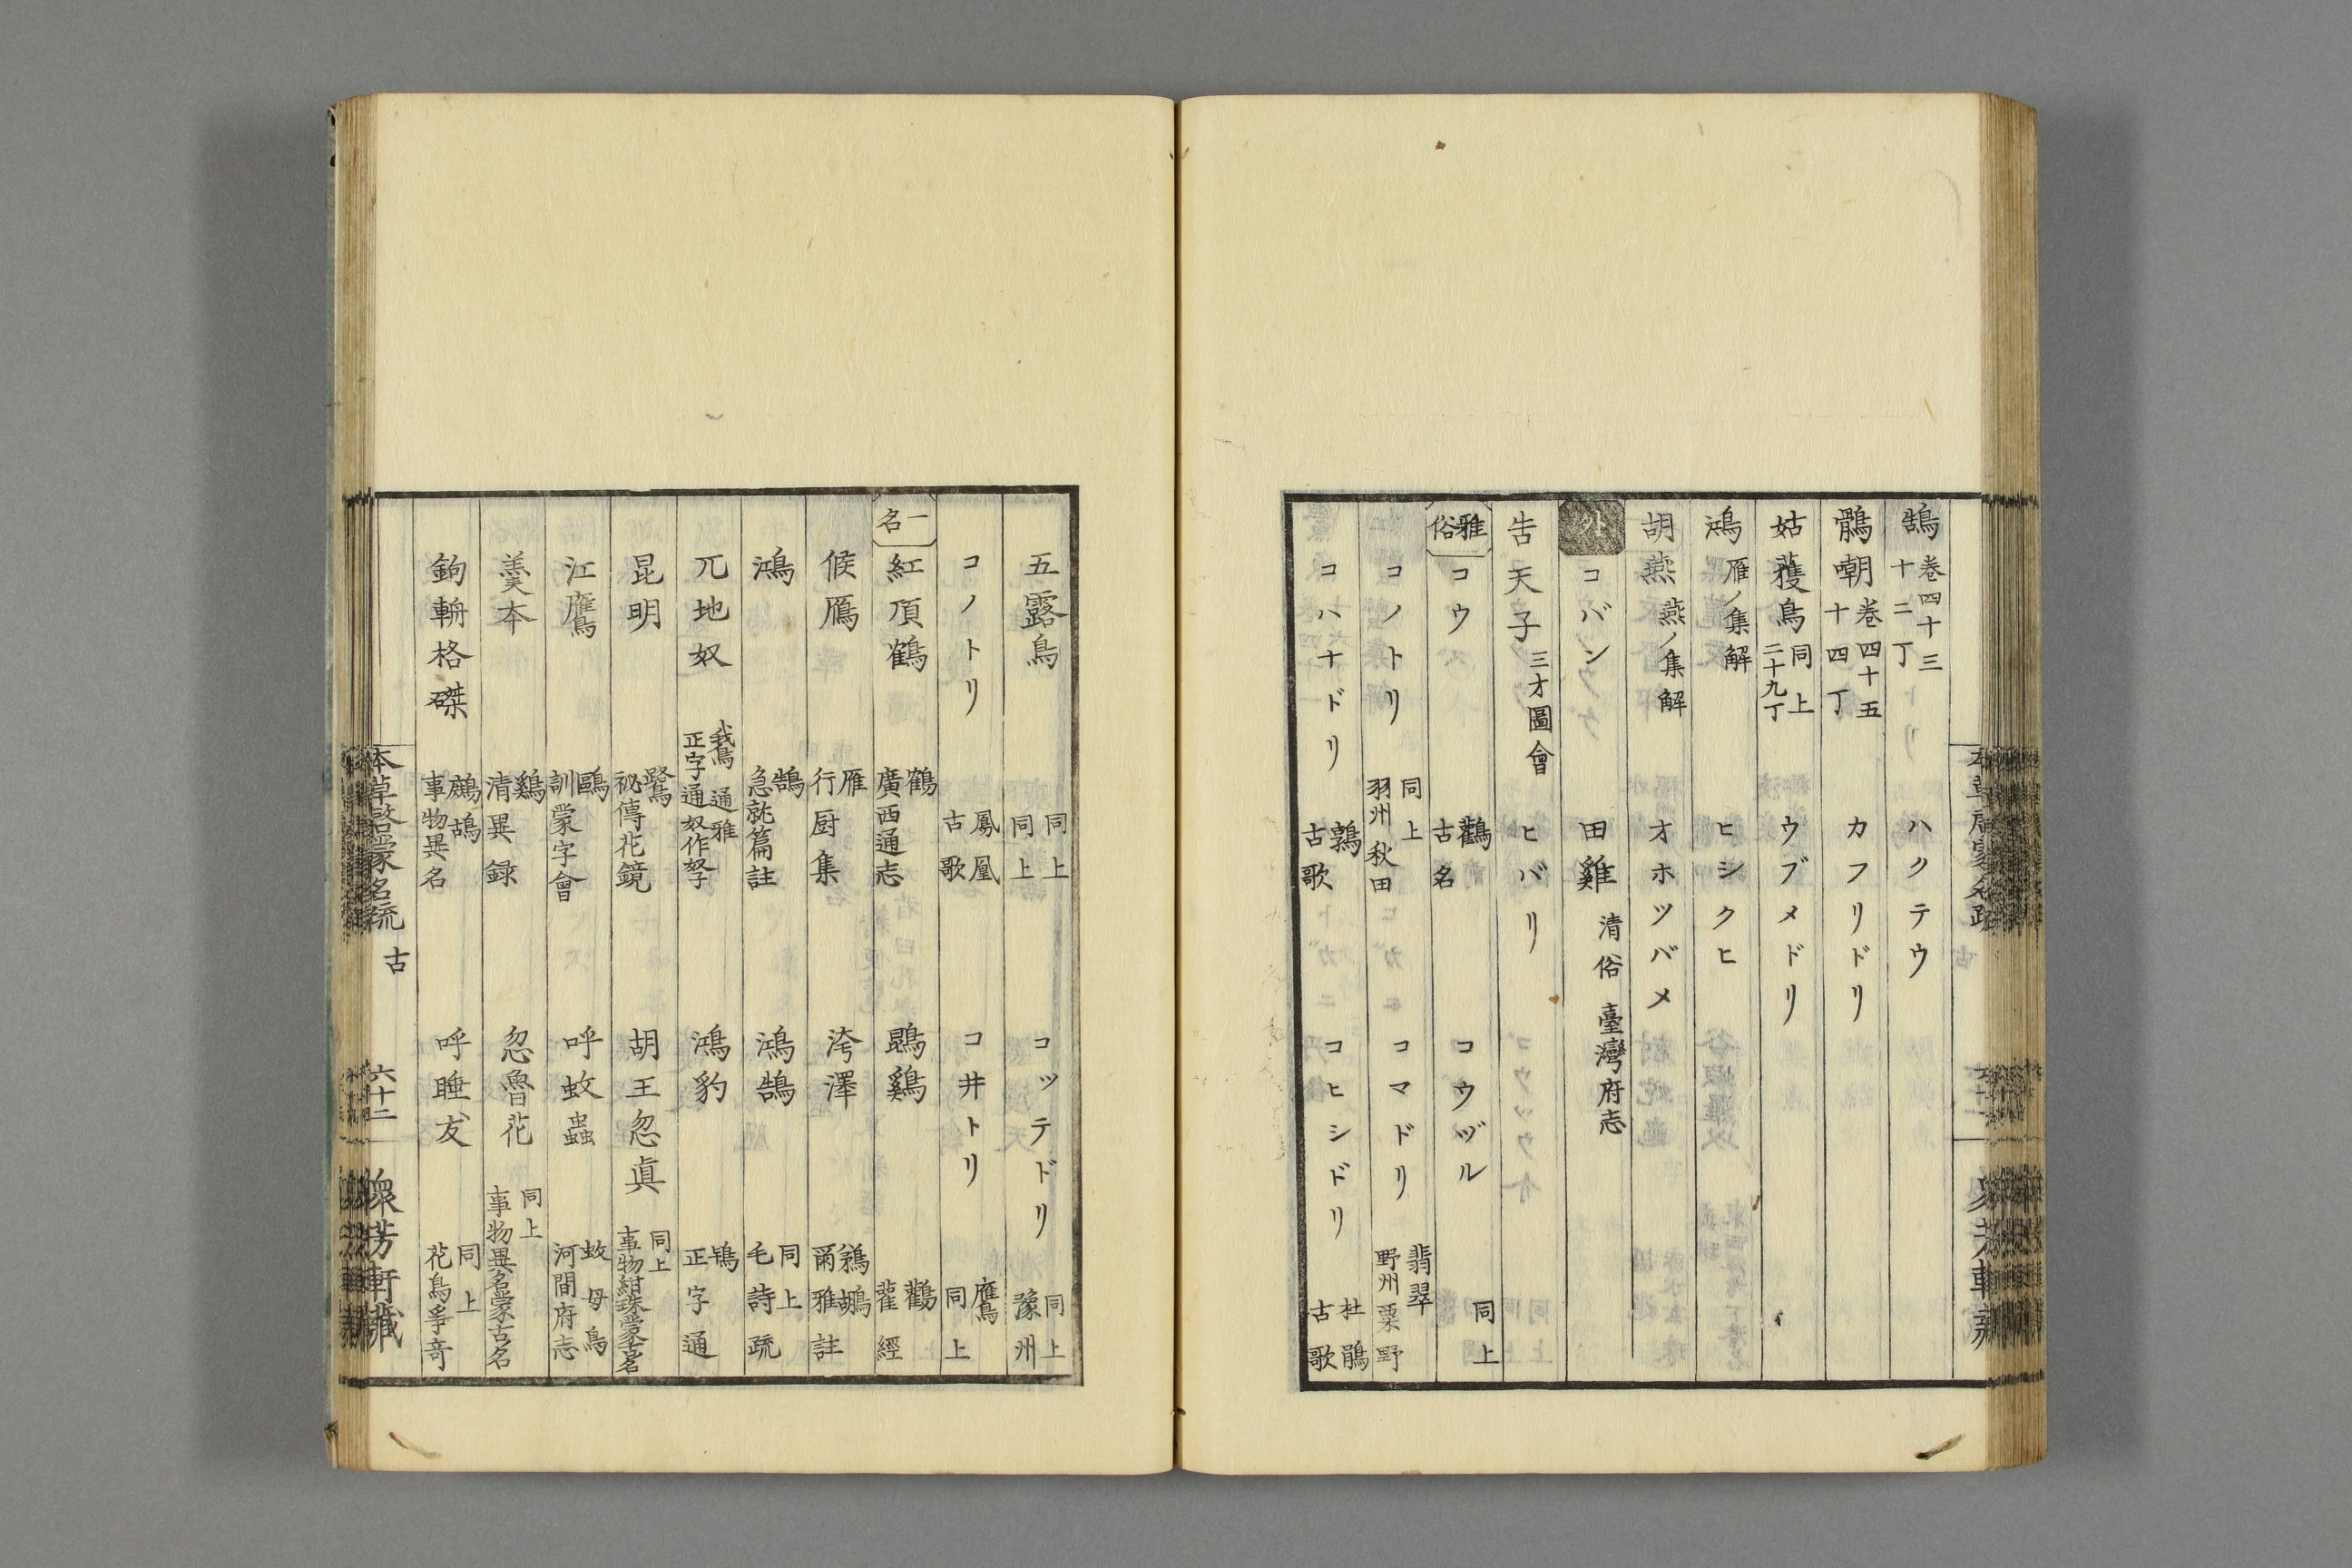 鵠 卷四十三 十二丁 ハクテウ
鶻嘲 卷四十五 十四丁 カフリドリ
姑蒦鳥 同上 二十九丁 ウブメドリ
鴻 雁ノ集解 ヒシクヒ
胡燕 燕ノ集解 オホツバメ
外 コバン 田雞 清俗 臺灣府志
告天子 三才圖會 ヒバリ
雅俗 コウ 鸛 古名 コウヅル 同上
コノトリ 同上 羽州秋田 コマドリ 翡翠 野州粟野
コハナドリ 鶉 古歌 コヒシドリ 杜鵑 古歌
五露鳥 同上 同上 コッテドリ 同上 豫州
コノトリ 鳳凰 古歌 コ井トリ 鷹 同上
一名 紅頂鶴 鶴 廣西通志 鵾鷄 鸛 藋經
候鴈 雁 行厨集 洿澤 鵜鶘 爾雅註
鴻 鵠 急就篇註 鴻鵠 同上 毛詩疏
兀地奴 鵞 通雅 正字通奴作孥 鴻豹 鴇 正字通
昆明 鷖 祕傳花鏡 胡王忽眞 同上 事物紺珠蒙古名
江鷹 鷗 訓蒙字會 呼蚊蟲 蚊母鳥 河間府志
羹本 鷄 清異録 忽魯花 同上 事物異名蒙古名
鉤輈格磔 鷓鴣 事物異名 呼睡友 同上 花鳥爭竒
本草啓蒙名疏 古 六十二 衆芳軒藏